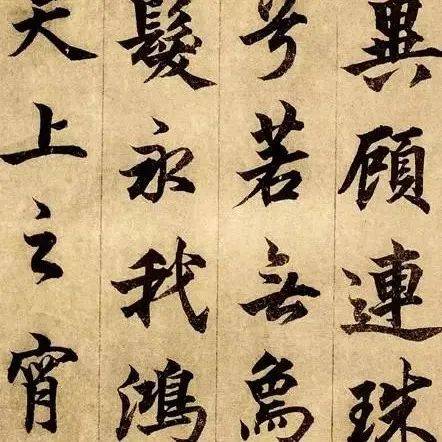 異顧連珠
兮若無為
髮永我鴻
天上之宵